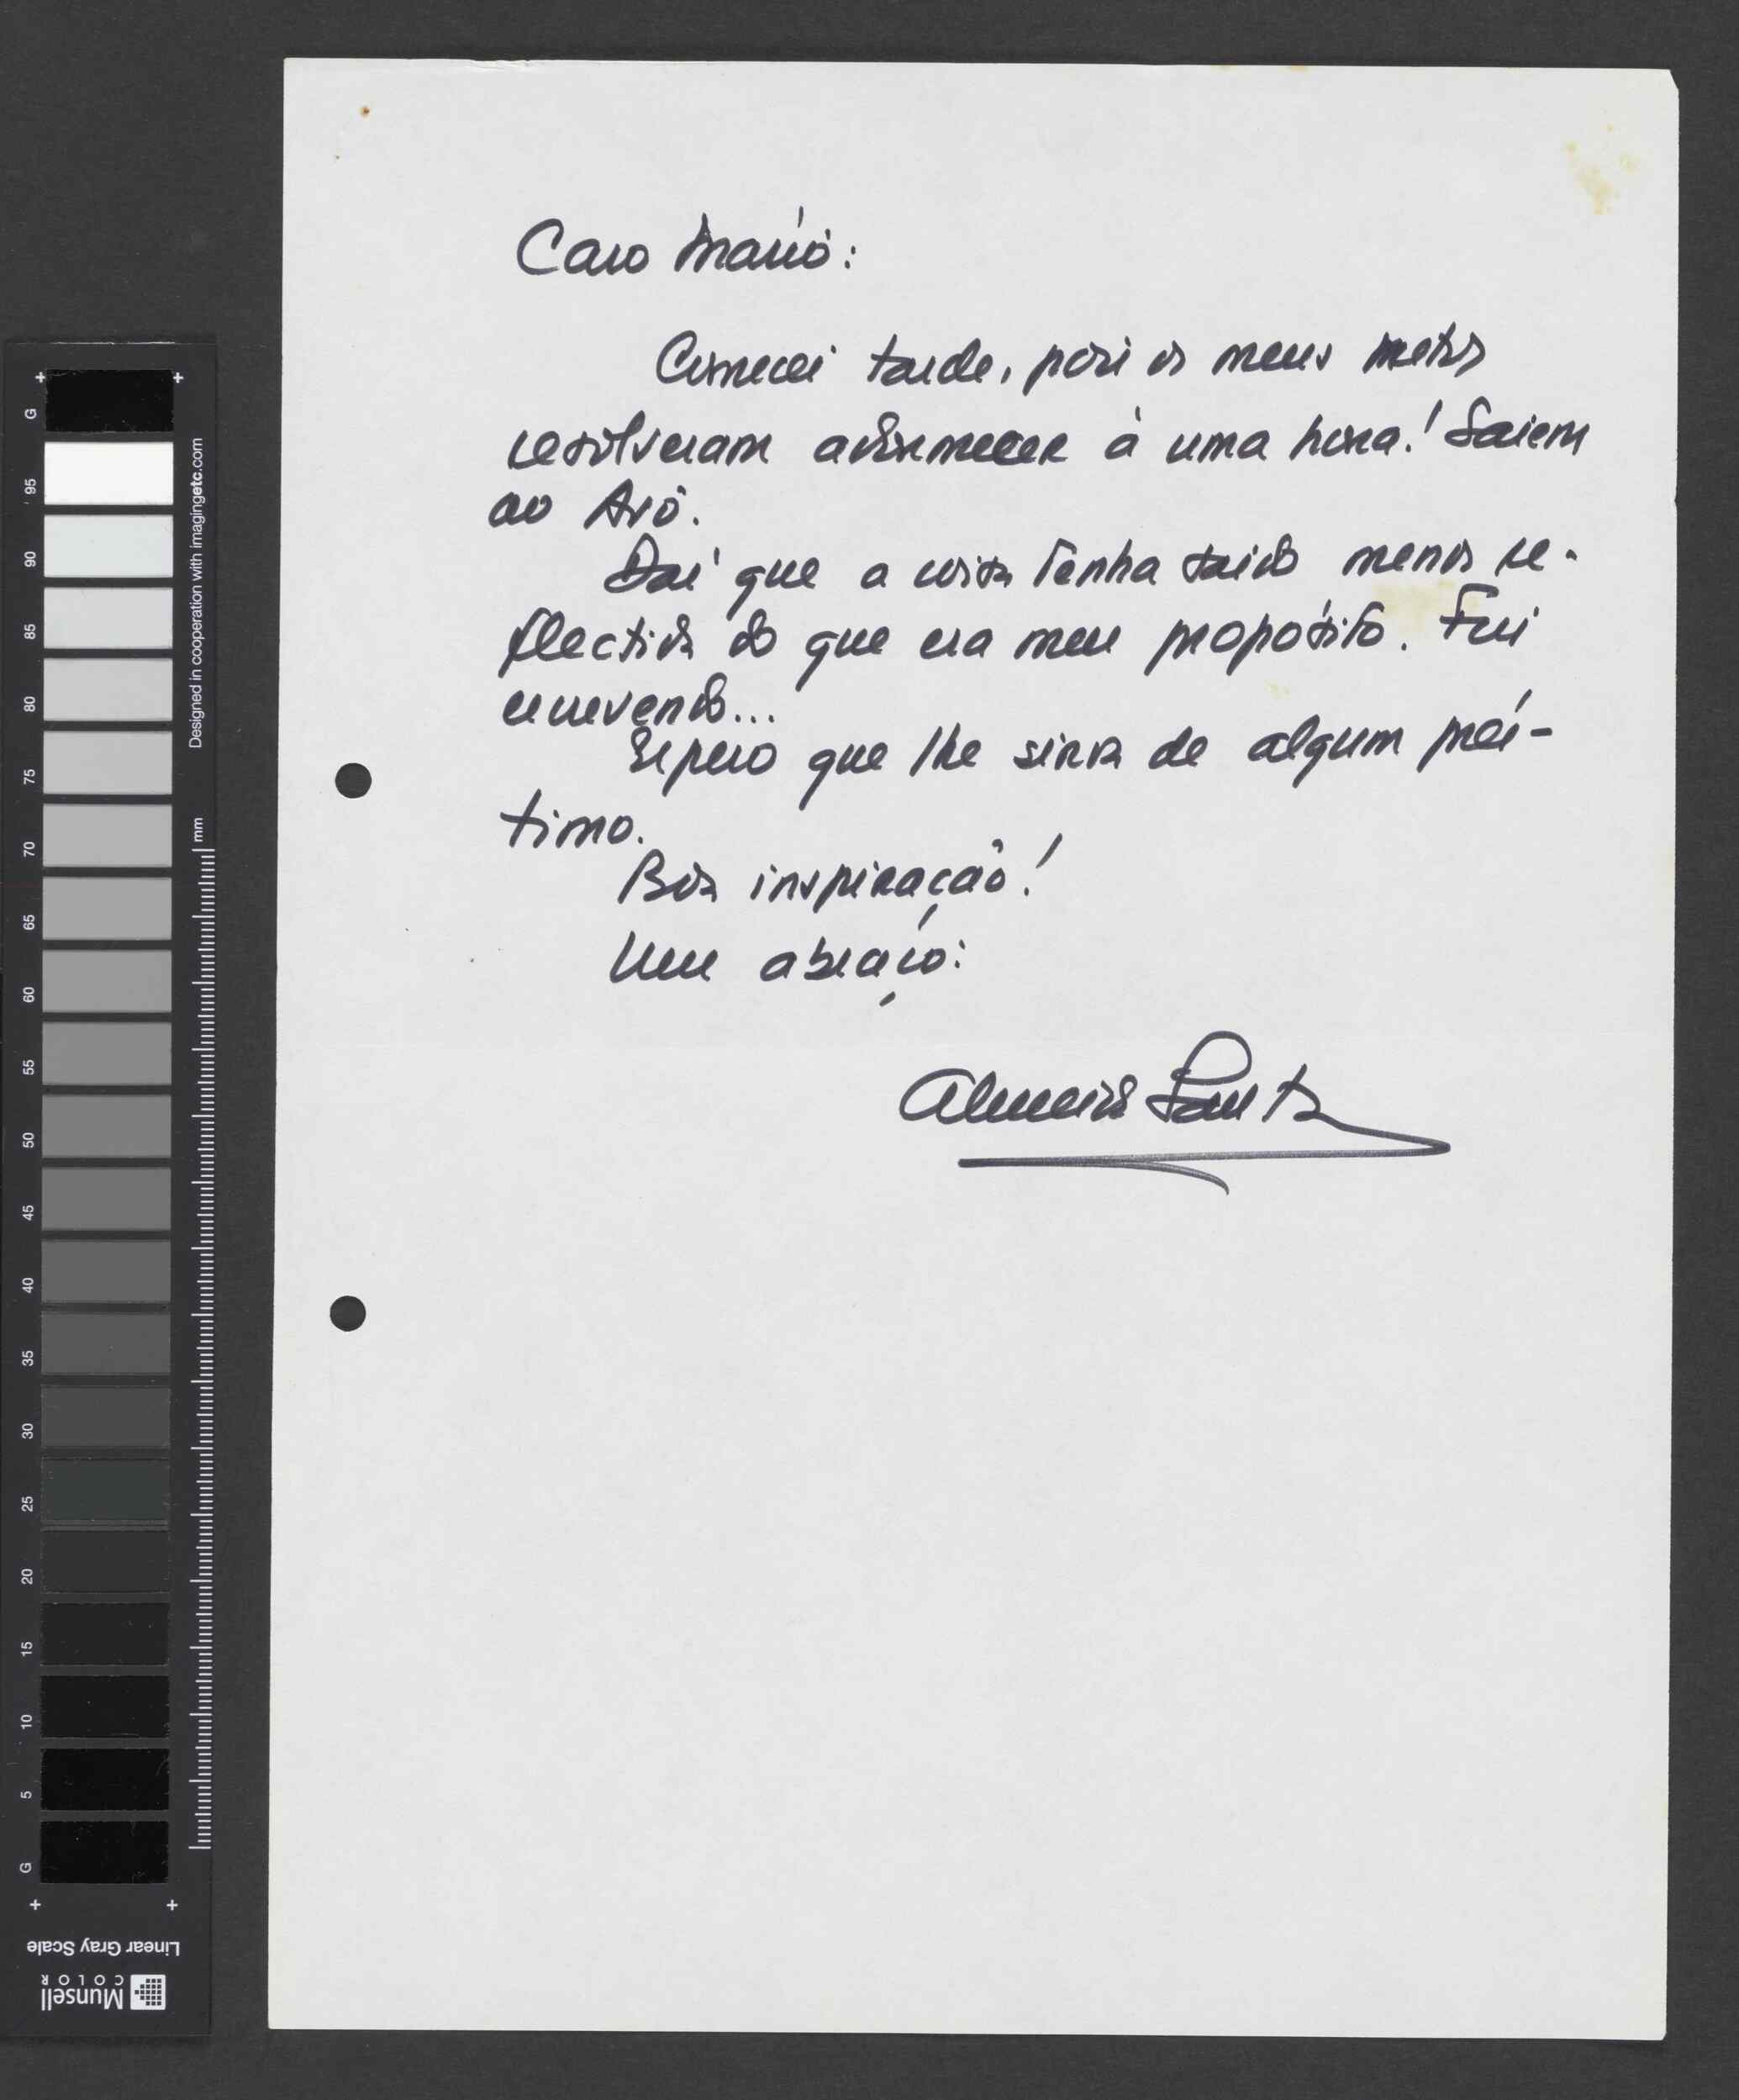 Caro Mário:
Comecei tarde, pois os meus netos
resolveram adormecer à uma hora! Saiem
ao Avô.
Daí que a coisa tenha saído menos re-
flectida do que era meu propósito. Fui
escrevendo...
Espero que lhe sirva de algum prés-
timo.
Boa inspiração!
Um abraço:
Almeida Santos
G 95 90 85 80 75 70 65 60 55 50 45 40 35 30 25 20 15 10 5 G
Designed in cooperation with imagingetc.com
mm
Linear Gray Scale
Munsell
COLOR